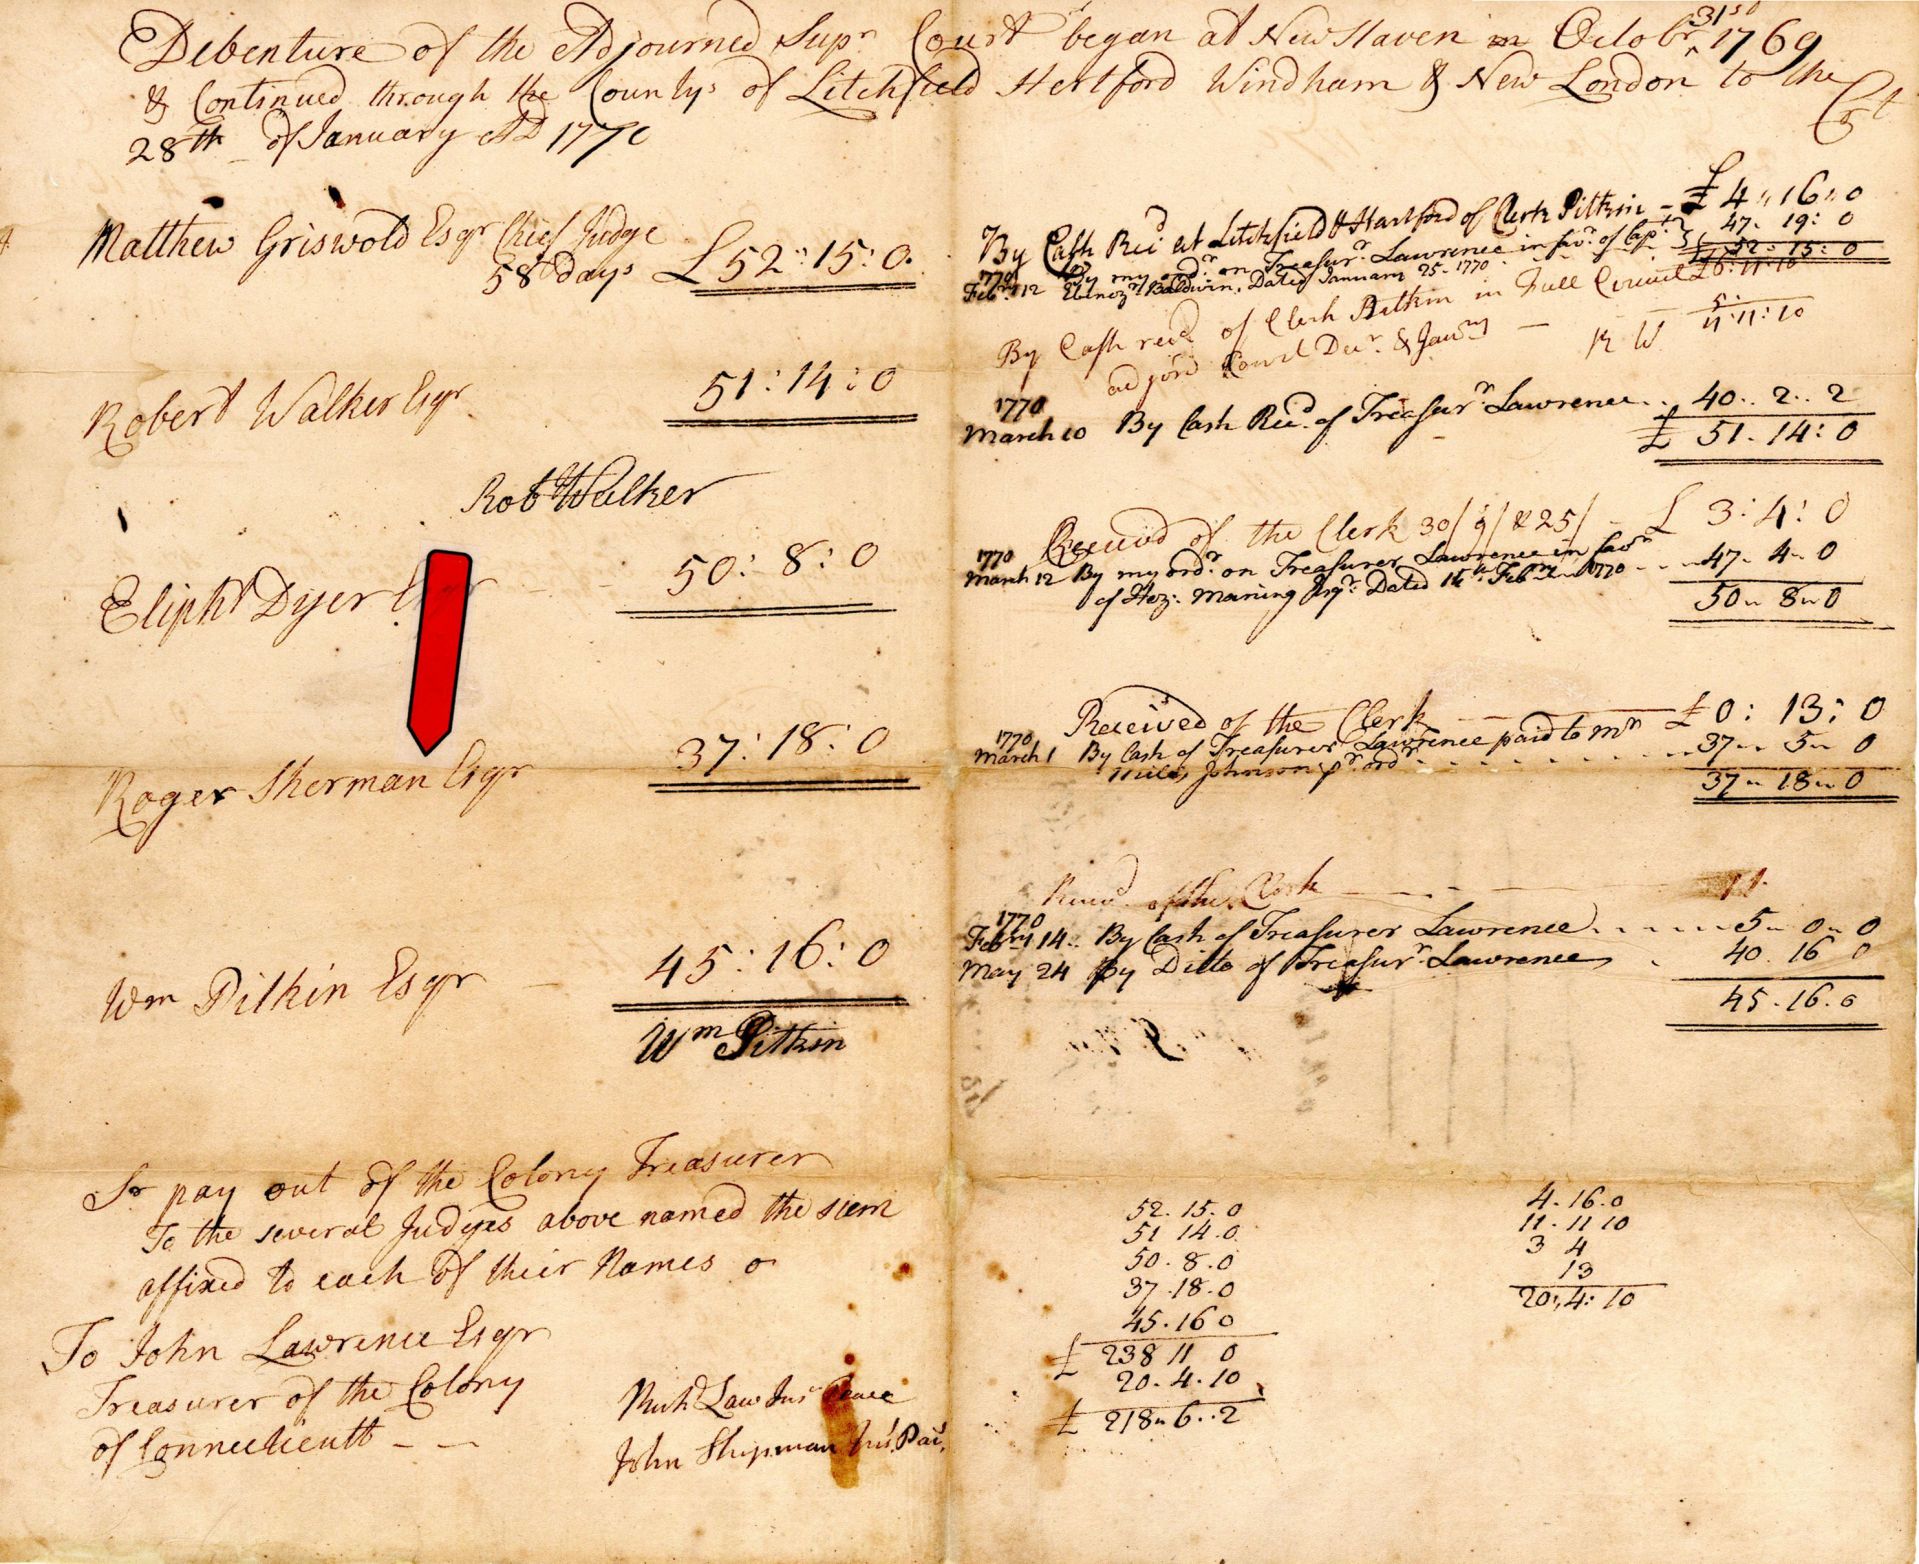 Debenture of the Adjourned Supr Court began at New Haven in Octobr 31st 1769
& Continued through the Countys of Litchfield Hertford Windham & New London to the
28th of January AD 1770
Crt
Matthew Griswold Esqr Chief Judge
58 days £52:15:0
By Cash Recd at Litchfield & Hartford of Clerk Pitkin - £4:16:0
1770 By my ordr on Treasurr Lawrence in favr of Capt 47. 19: 0
Febry 12 Ebenezr Baldwin, Dated January 25 - 1770 £52:15:0
Robert Walker Esqr 51:14:0
By Cash recd of Clerk Pitkin in Full Council £6:11:10
adjörd Court Decr & Janry - R W 5:
11:11:10
1770
March 10 By Cash Recd of Treasurr Lawrence .. 40..2..2
£ 51.14:0
Robt Walker
Elipht Dyer 50:8:0
Received of the Clerk 30/ 9/ & 25/ - £ 3:4:0
1770
March 12 By my ordr on Treasurer Lawrence in favr 47. 4. 0
of Hez: Maning Dated 1770
50 8 0
Roger Sherman Esqr 37:18:0
Received of the Clerk £0:13:0
1770
March 1 By Cash of Treasurer Lawrence paid to Mr 37 5 0
Miles Johnson pr ordr
37 18 0
Wm Pitkin Esqr - 45:16:0
Recd of the Clerk
1770
Febry 14 By Cash of Treasurer Lawrence 5 0 0
May 24 By Ditto of Treasurr Lawrence 40.16 0
45.16.0
Wm Pitkin
Sr pay out of the Colony Treasurer
To the several Judges above named the sum
affixed to each of their Names
To John Lawrence Esqr
Treasurer of the Colony
of Connecticutt - -
Richd Law Jus Peace
John Shipman
52.15.0
51 14.0
50.8.0
37.18.0
45.16 0
£ 238 11 0
20.4.10
£ 218 6..2
4.16.0
11.11 10
3 4
13
20:4:10